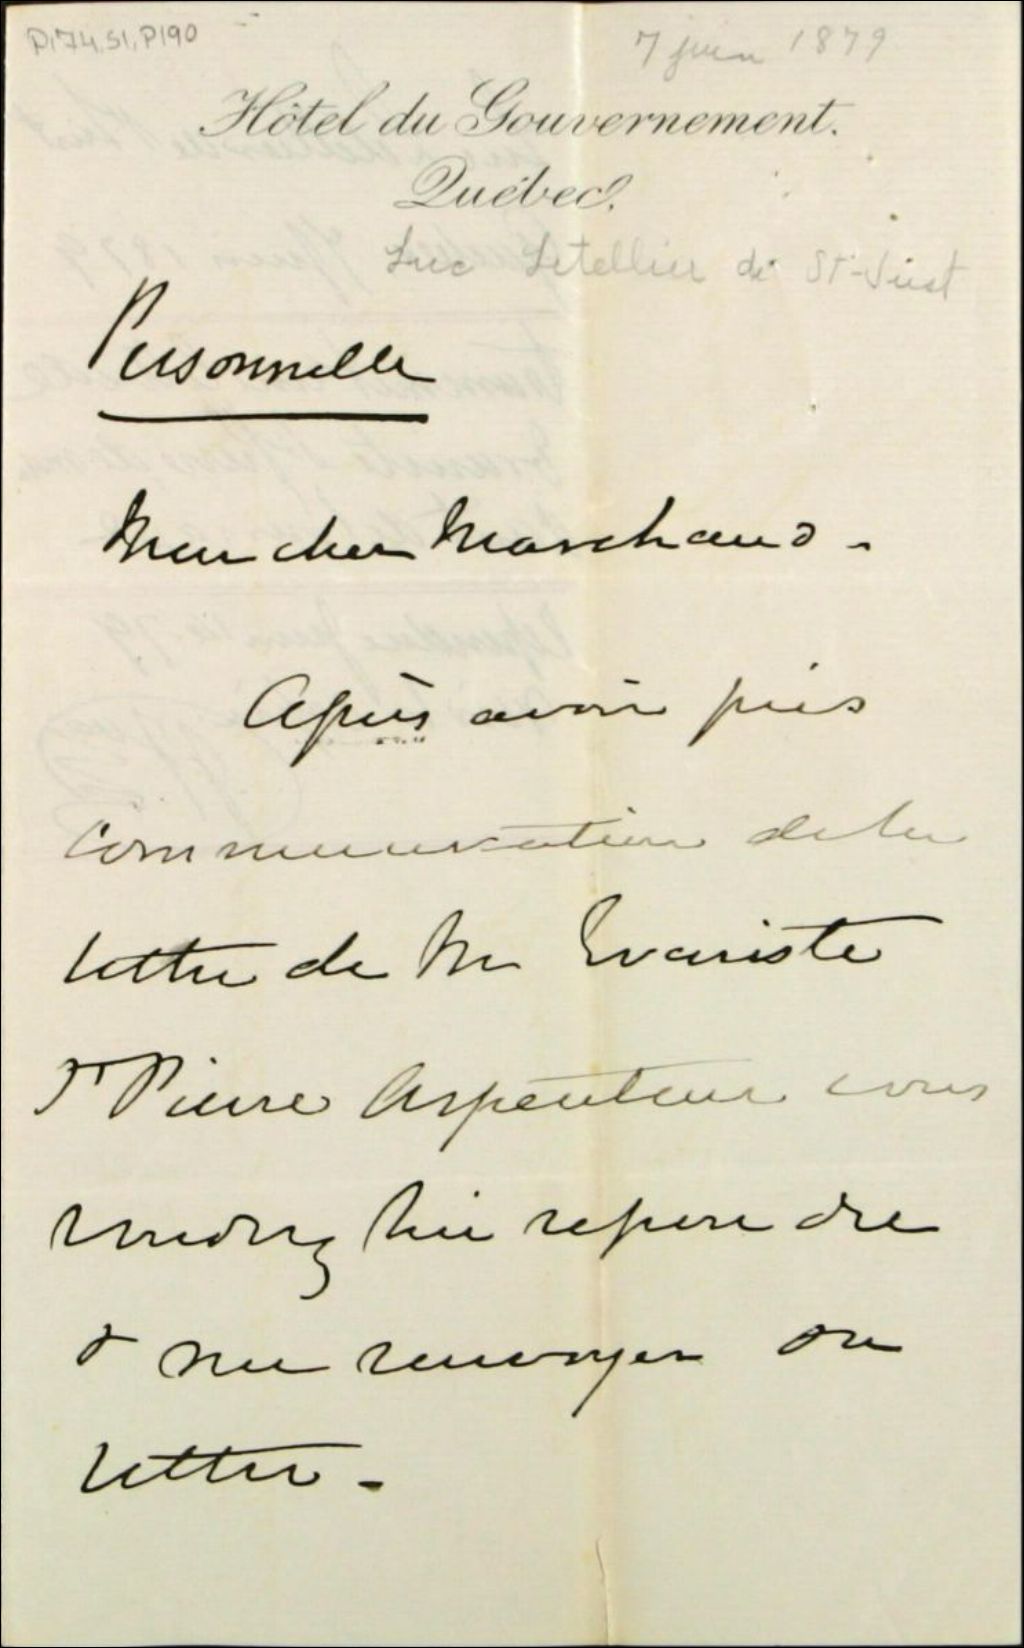 P174,S1,P190
7 juin 1879
Hôtel du Gouvernement.
Québec.
Luc Letellier de St-Just
Personnelle
Mon cher Marchand -
Après avoir pris
communication de la
lettre de Mr Evariste
St Pierre Arpenteur vous
voudrez lui repondre
& me renvoyer sa
lettre -